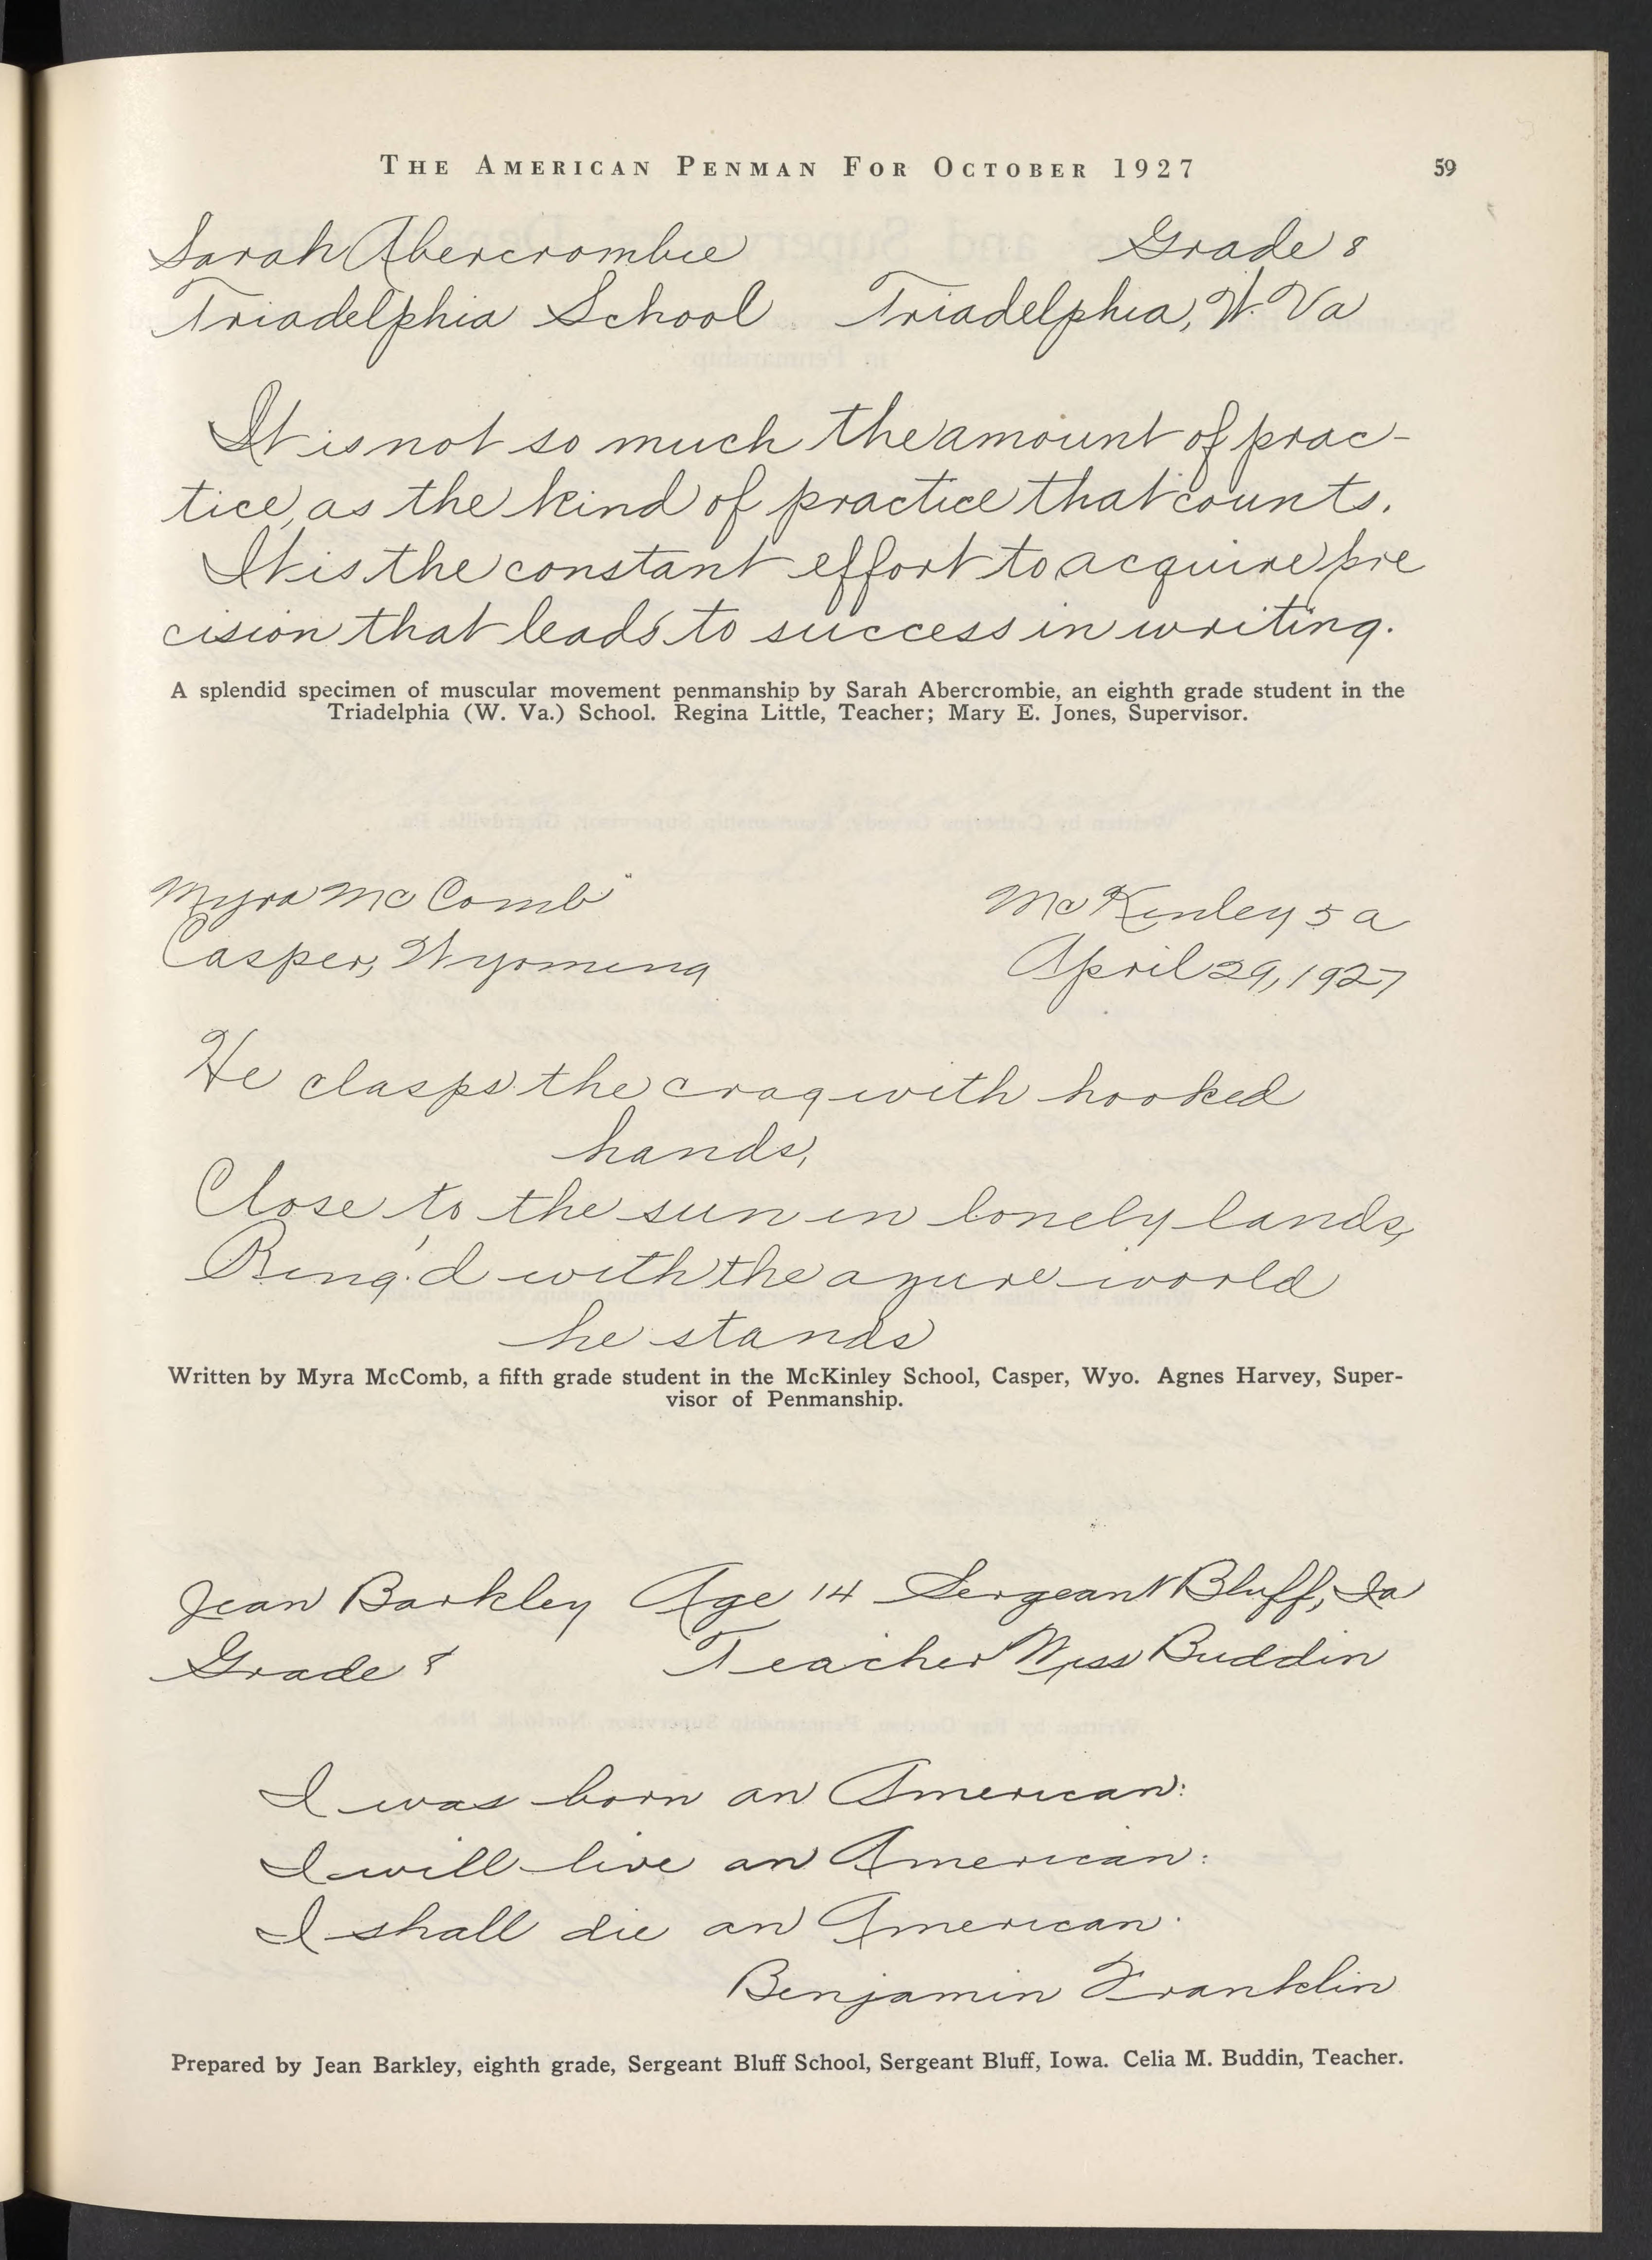 THE AMERICAN PENMAN FOR OCTOBER 1927 59
Sarah Abercrombie Grade 8
Triadelphia School Triadelphia, W. Va
It is not so much the amount of prac-
tice, as the kind of practice that counts.
It is the constant effort to acquire pre
cision that leads to success in writing.
A splendid specimen of muscular movement penmanship by Sarah Abercrombie, an eighth grade student in the
Triadelphia (W. Va.) School. Regina Little, Teacher; Mary E. Jones, Supervisor.
Myra McComb McKinley 5a
Casper, Wyoming April 29, 1927
He clasps the crag with hooked
hands,
Close to the sun in lonely lands,
Ring'd with the azure world
he stands
Written by Myra McComb, a fifth grade student in the McKinley School, Casper, Wyo. Agnes Harvey, Super-
visor of Penmanship.
Jean Barkley Age 14 Sergeant Bluff, Ia
Grade 8 Teacher Miss Buddin
I was born an American:
I will live an American:
I shall die an American.
Benjamin Franklin
Prepared by Jean Barkley, eighth grade, Sergeant Bluff School, Sergeant Bluff, Iowa. Celia M. Buddin, Teacher.